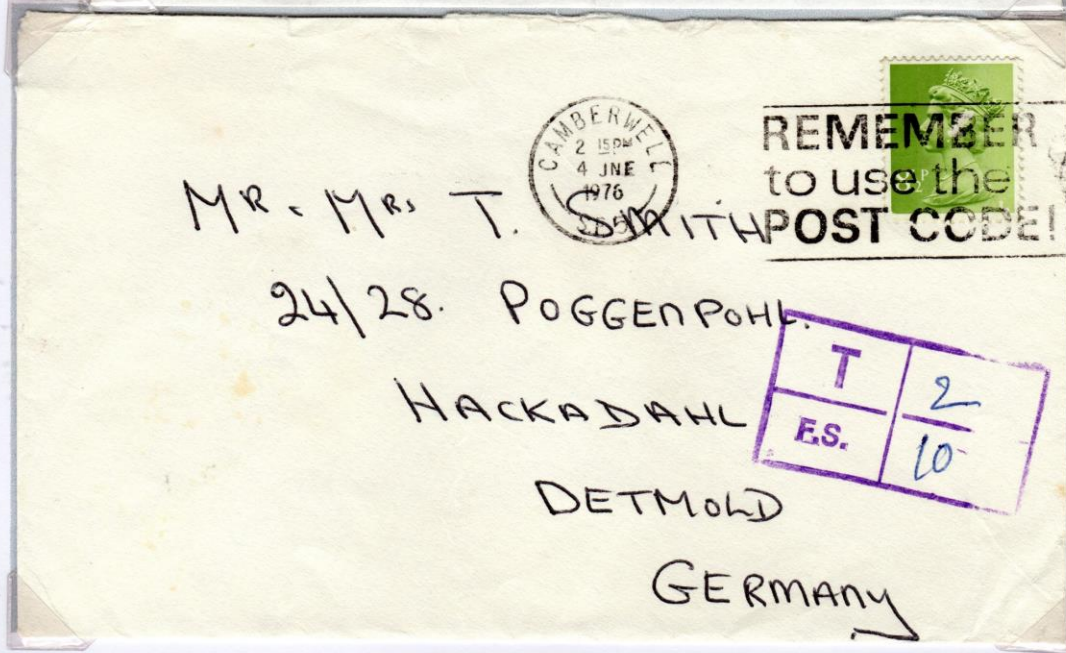 CAMBERWELL
2 15PM
4 JNE
1976
REMEMBER
to use the
POST CODE!
MR. MRS T. SMITH
24/28. POGGENPOHL.
HACKADAHL
DETMOLD
GERMANY
T 2
F.S. 10